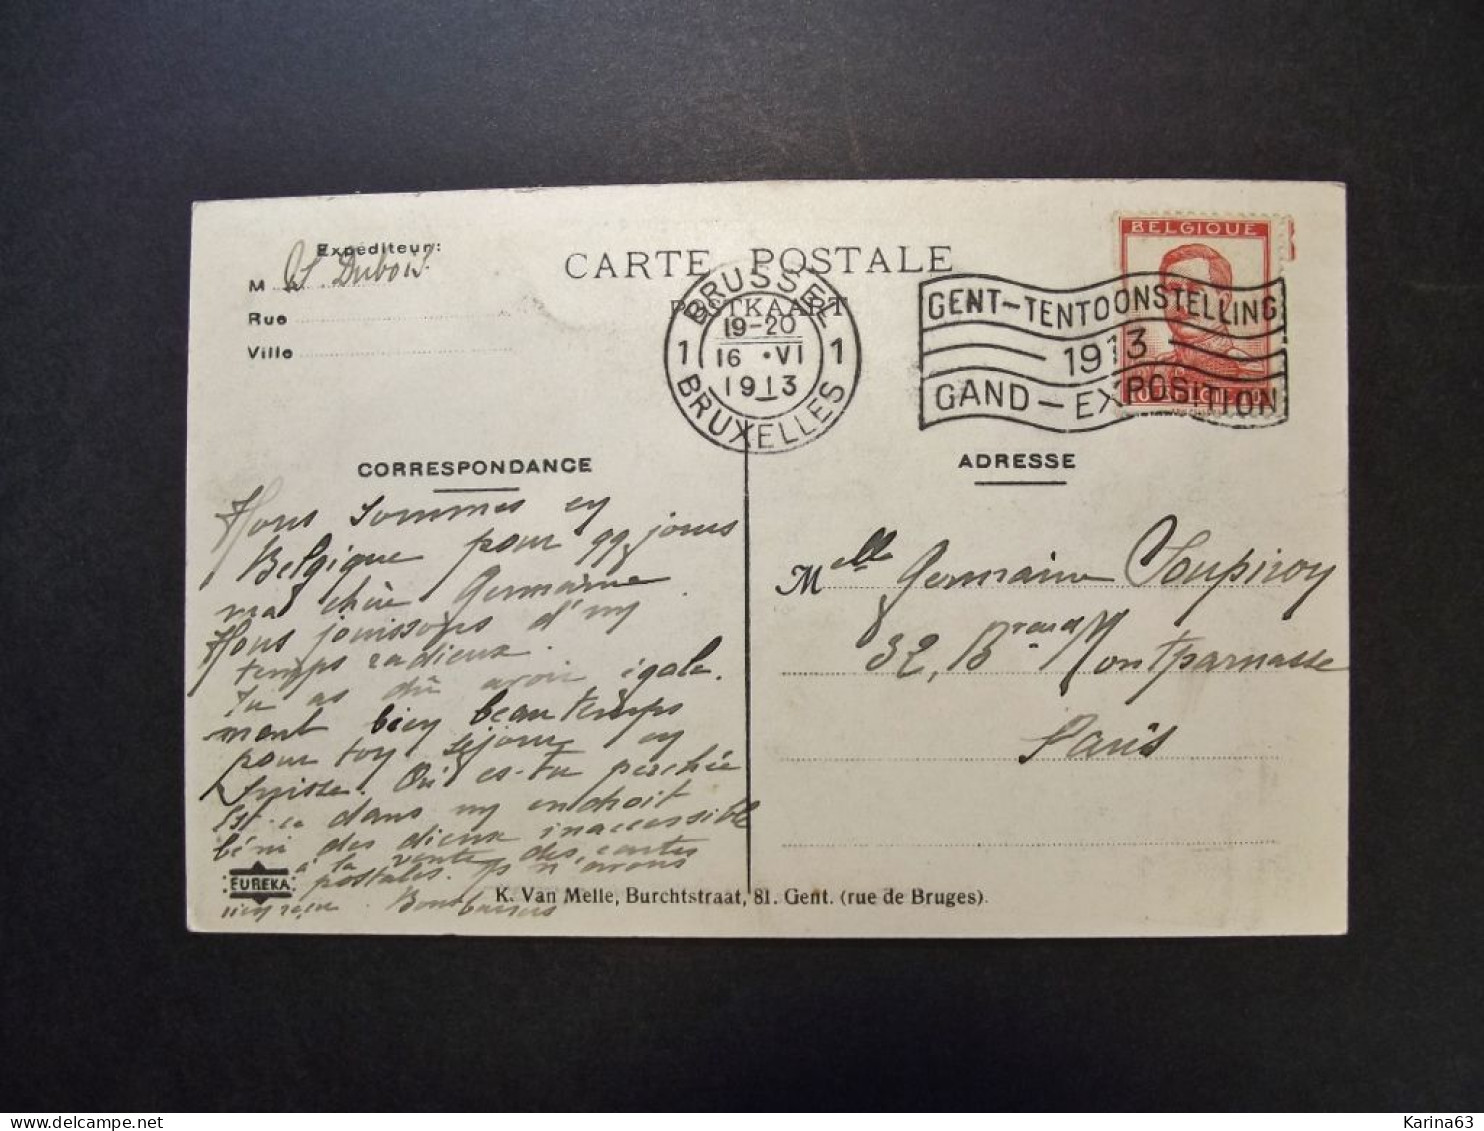 Expéditeur:
M Dubois
Rue
Ville
CARTE POSTALE
POSTKAART
BRUSSEL
1 19-20 1
16 · VI
1913
BRUXELLES
BELGIQUE
GENT-TENTOONSTELLING
1913
GAND-EXPOSITION
CORRESPONDANCE
Nous sommes en
Belgique pour qq. jours
ma chère Germaine
Nous jouissons d'un
temps radieux.
Tu as dû avoir égale-
ment bien beau temps
pour ton séjour en
Suisse. Où es-tu perchée
Est-ce dans un endroit
béni des dieux inaccessible
à la vente des cartes
postales. n'avons
rien reçu. Bons baisers
EUREKA
ADRESSE
Melle Germaine Soupiroy
32, Bvard Montparnasse
Paris
K. Van Melle, Burchtstraat, 81. Gent. (rue de Bruges).
Karina63